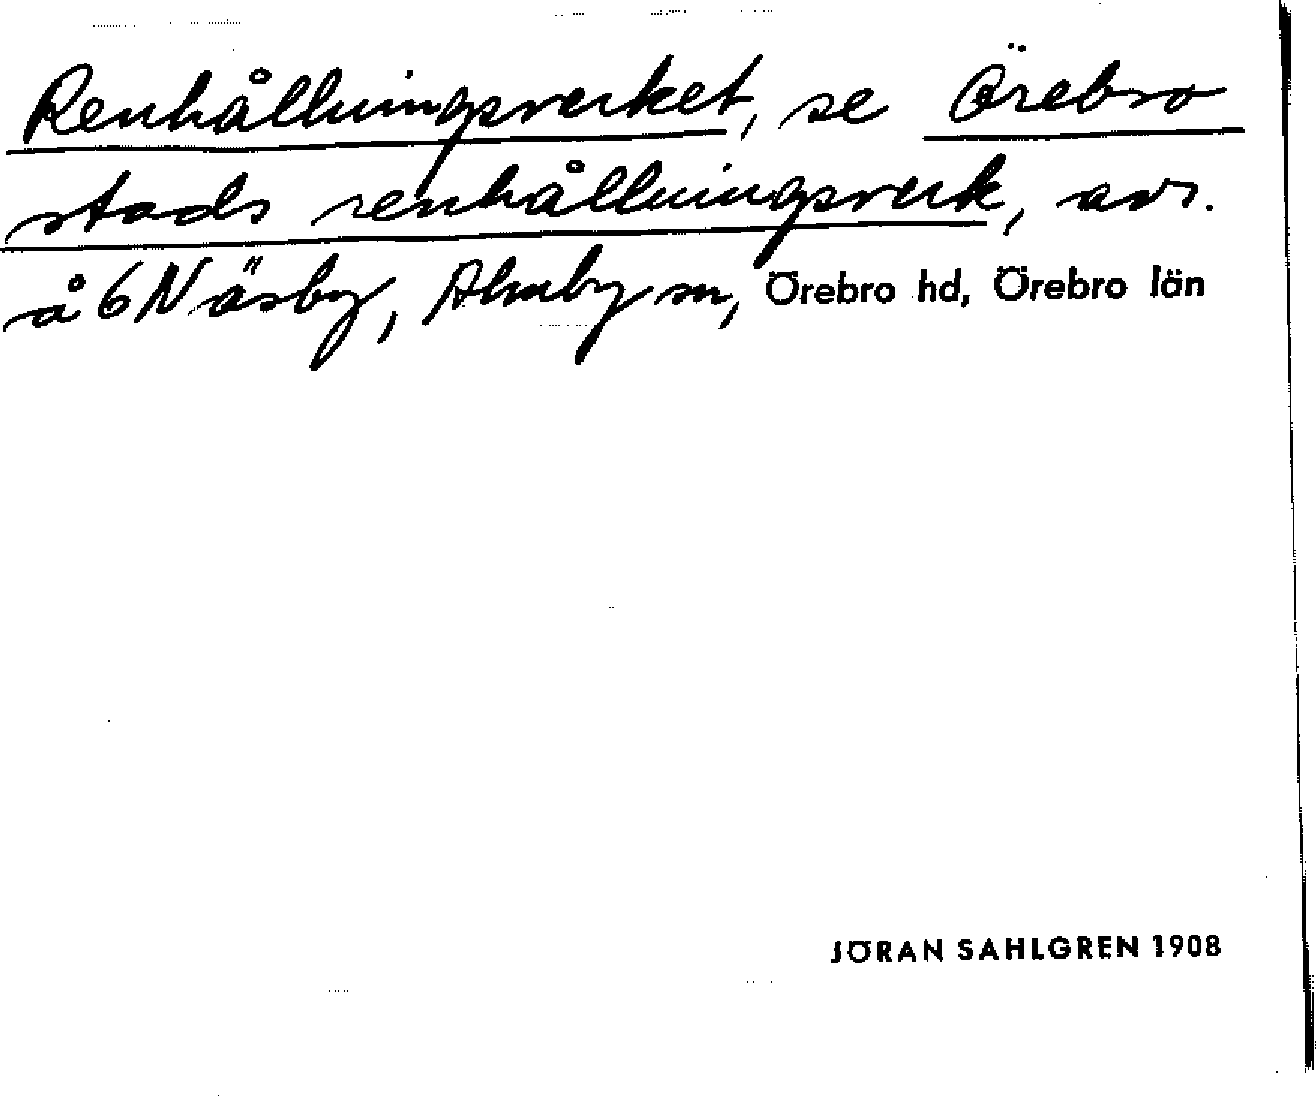 Renhållningsverket, se Örebro
stads renhållningsverk, avs.
å 6 Näsby, Almby sn, Örebro hd, Örebro län
JÖRAN SAHLGREN 1908